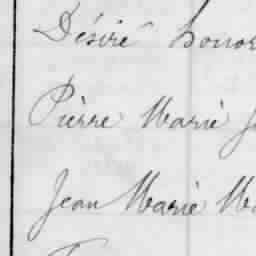 Désiré honor
Pierre Marie J
Jean Marie Ma